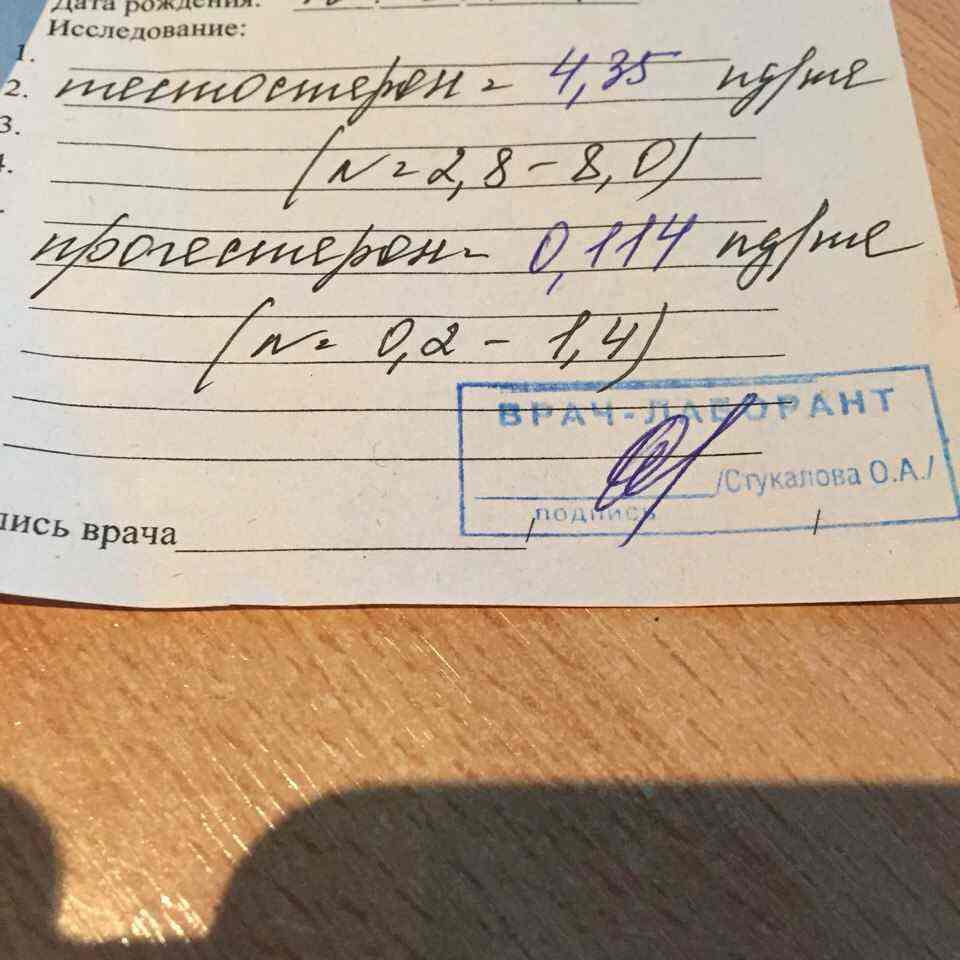 Дата рождения:
Исследование:
1.
2. тестостерон = 4,35 нг/мл
3.
(N = 2,8 - 8,0)
4.
прогестерон = 0,114 нг/мл
(N = 0,2 - 1,4)
ВРАЧ-ЛАБОРАНТ
/Стукалова О.А./
подпись
пись врача / /